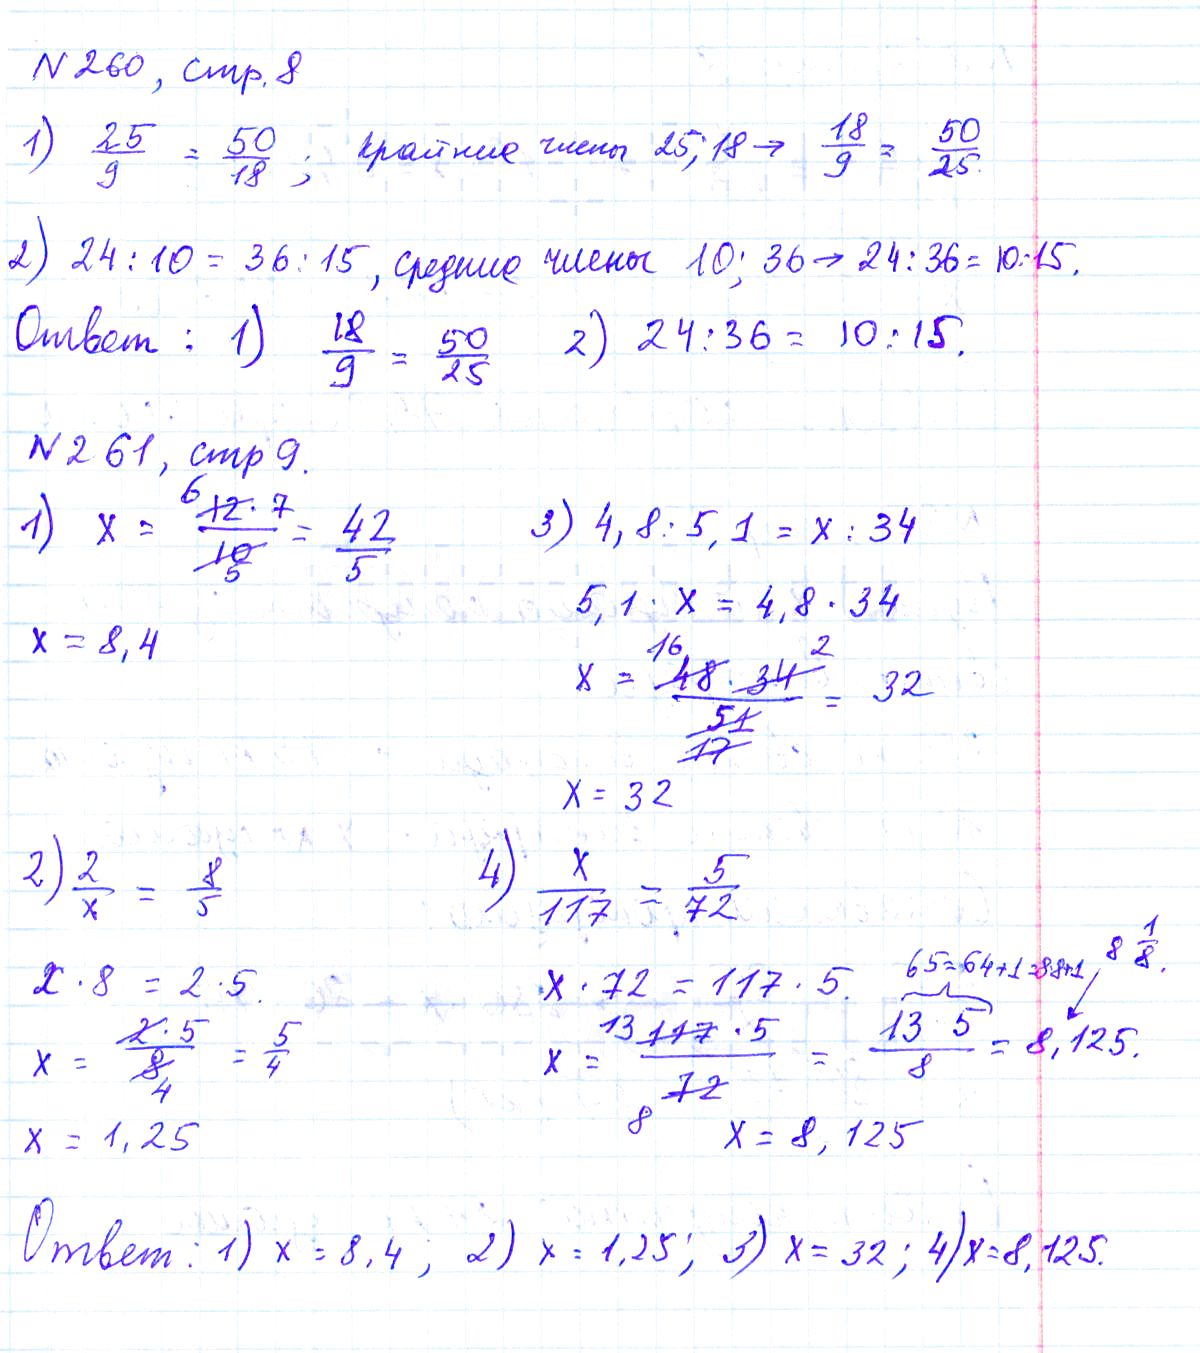 N 260, стр. 8
1) 25/9 = 50/18; крайние члены 25; 18 → 18/9 = 50/25.
2) 24 : 10 = 36 : 15, средние члены 10; 36 → 24 : 36 = 10 : 15.
Ответ: 1) 18/9 = 50/25 2) 24 : 36 = 10 : 15.
N 261, стр 9.
1) x = 12 · 7 / 10 = 42/5
6
5
x = 8,4
3) 4,8 : 5,1 = x : 34
5,1 · x = 4,8 · 34
x = 48 · 34 / 51 = 32
16 2
17
x = 32
2) 2/x = 8/5
x · 8 = 2 · 5.
x = 2 · 5 / 8 = 5/4
4
x = 1,25
4) x/117 = 5/72
x · 72 = 117 · 5.
65 = 64 + 1 = 8·8+1, 8 1/8.
x = 117 · 5 / 72 = 13 5 / 8 = 8,125.
13
8
x = 8,125
Ответ: 1) x = 8,4; 2) x = 1,25; 3) x = 32; 4) x = 8,125.